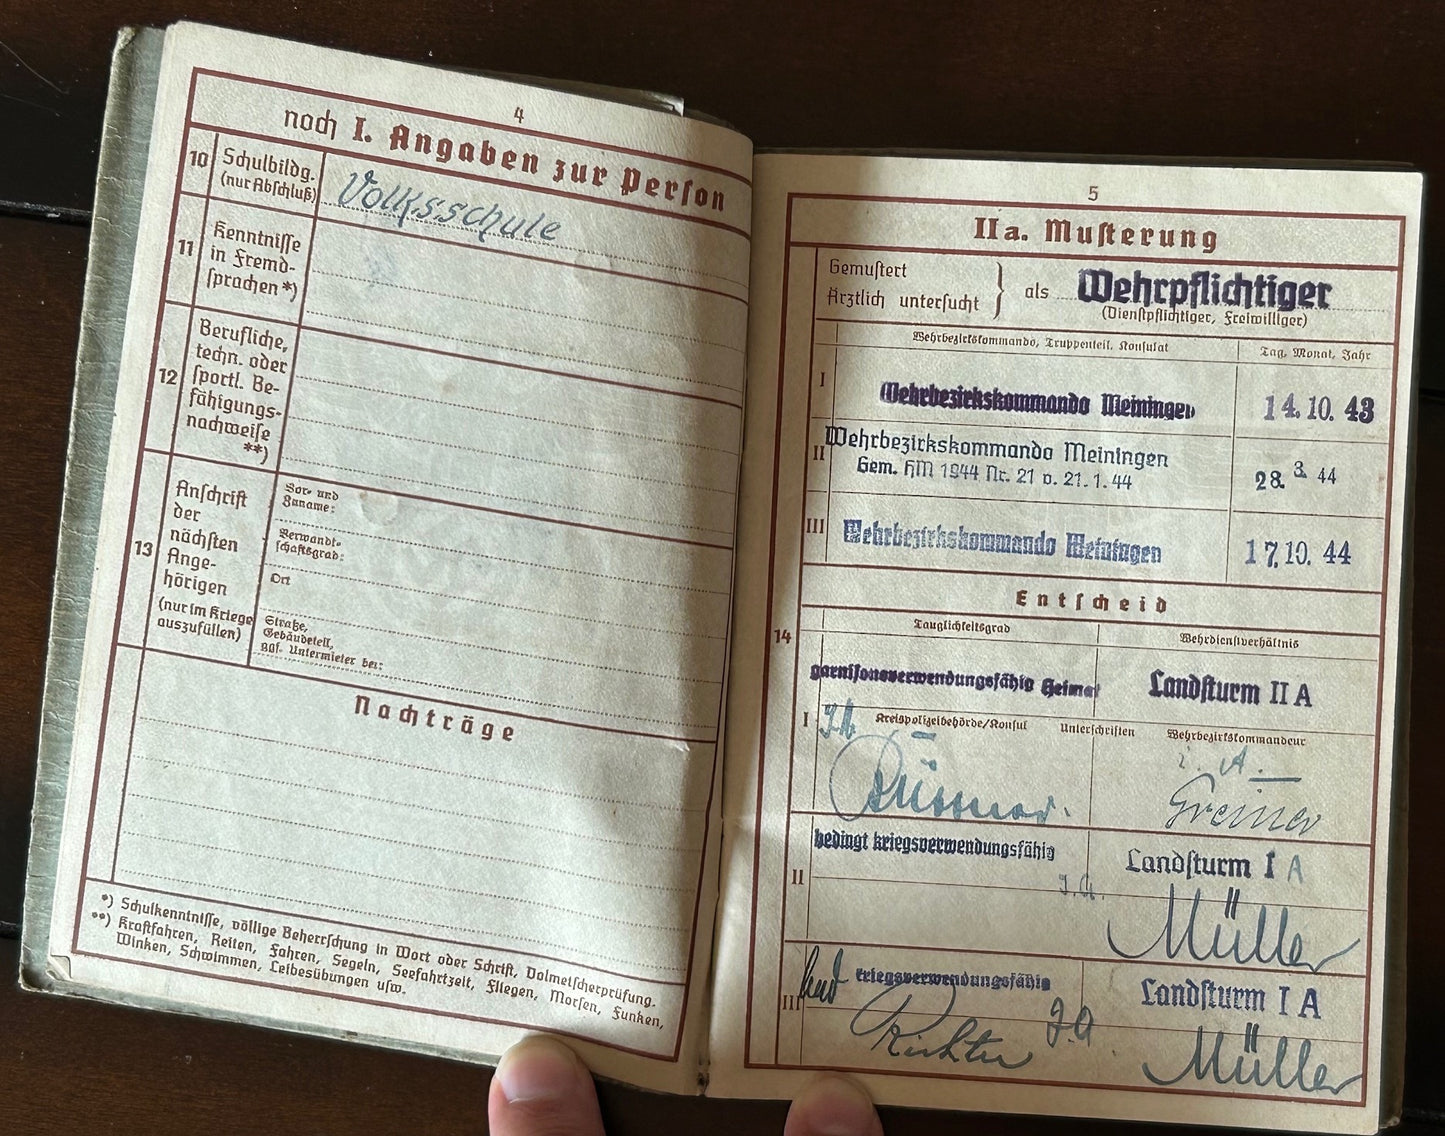 4
noch I. Angaben zur Person
10
Schulbildg.
(nur Abschluß)
Volksschule
11
Kenntnisse
in Fremd-
sprachen *)
12
Berufliche,
techn. oder
sportl. Be-
fähigungs-
nachweise
**)
13
Anschrift
der
nächsten
Ange-
hörigen
(nur im Kriege
auszufüllen)
Vor- und
Zuname:
Verwandt-
schaftsgrad:
Ort
Straße,
Gebäudeteil,
ggf. Untermieter bei:
Nachträge
*) Schulkenntnisse, völlige Beherrschung in Wort oder Schrift, Dolmetscherprüfung.
**) Kraftfahren, Reiten, Fahren, Segeln, Seefahrtzeit, Fliegen, Morsen, Funken,
Winken, Schwimmen, Leibesübungen usw.
5
IIa. Musterung
Gemustert
Ärztlich untersucht } als Wehrpflichtiger
(Dienstpflichtiger, Freiwilliger)
Wehrbezirkskommando, Truppenteil, Konsulat
Tag, Monat, Jahr
I Wehrbezirkskommando Meiningen 14.10.43
II Wehrbezirkskommando Meiningen
Gem. HM 1944 Nr. 21 v. 21.1.44
28. 3. 44
III Wehrbezirkskommando Meiningen 17.10.44
Entscheid
14
Tauglichkeitsgrad
Wehrdienstverhältnis
garnisonsverwendungsfähig Heimat Landsturm II A
I Kreispolizeibehörde/Konsul Unterschriften Wehrbezirkskommandeur
i. A.
Greiner
II bedingt kriegsverwendungsfähig Landsturm I A
J.A.
Müller
III bed kriegsverwendungsfähig Landsturm I A
Richter J.A
Müller